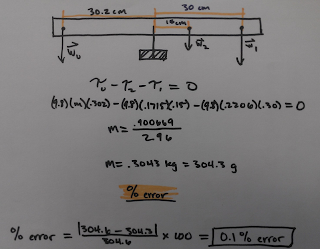 30.2 cm 30 cm
15cm
W⃗u W⃗2 W⃗1
τu - τ2 - τ1 = 0
(9.8)(m)(.302) - (9.8)(.1715)(.15) - (9.8)(.2206)(.30) = 0
m = .900669 / 2.96
m = .3043 kg = 304.3 g
% error
% error = |304.6 - 304.3| / 304.6 × 100 = 0.1 % error